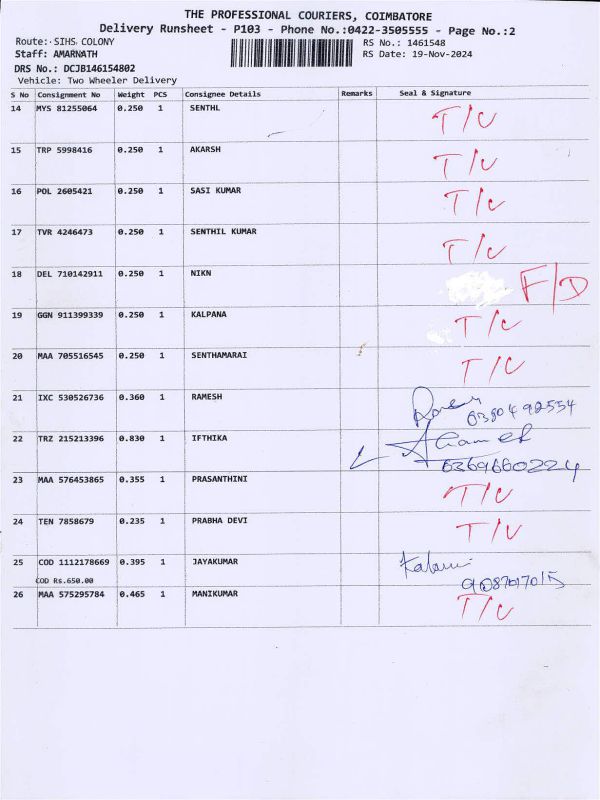 THE PROFESSIONAL COURIERS, COIMBATORE
Delivery Runsheet - P103 - Phone No.:0422-3505555 - Page No.:2
Route: SIHS COLONY RS No.: 1461548
Staff: AMARNATH RS Date: 19-Nov-2024
DRS No.: DCJB146154802
Vehicle: Two Wheeler Delivery
S No Consignment No Weight PCS Consignee Details Remarks Seal & Signature
14 MYS 81255064 0.250 1 SENTHL T/C
15 TRP 5998416 0.250 1 AKARSH T/C
16 POL 2605421 0.250 1 SASI KUMAR T/C
17 TVR 4246473 0.250 1 SENTHIL KUMAR T/C
18 DEL 710142911 0.250 1 NIKN F/D
19 GGN 911399339 0.250 1 KALPANA T/C
20 MAA 705516545 0.250 1 SENTHAMARAI T/C
21 IXC 530526736 0.360 1 RAMESH
22 TRZ 215213396 0.830 1 IFTHIKA
6369660224
23 MAA 576453865 0.355 1 PRASANTHINI T/C
24 TEN 7858679 0.235 1 PRABHA DEVI T/C
25 COD 1112178669 0.395 1 JAYAKUMAR
COD Rs.650.00
26 MAA 575295784 0.465 1 MANIKUMAR T/C